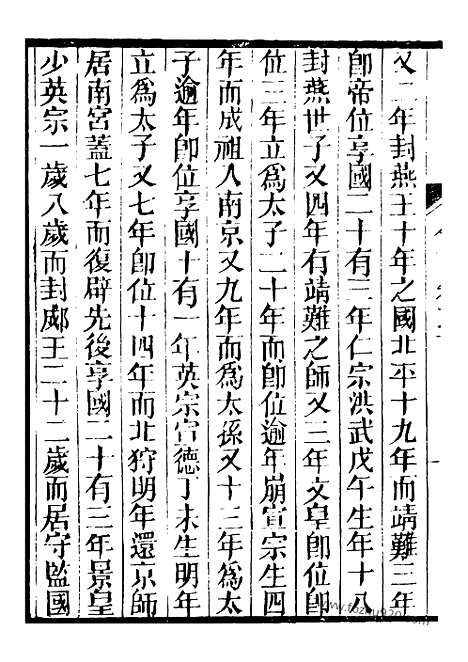 又二年封燕王十年之國北平十九年而靖難三年
卽帝位享國二十有三年仁宗洪武戊午生年十八
封燕世子又四年有靖難之師又三年文皇卽位卽
位三年立爲太子二十年而卽位逾年崩宣宗生四
年而成祖入南京又九年而爲太孫又十三年爲太
子逾年卽位享國十有一年英宗宣德丁未生明年
立爲太子又七年卽位十四年而北狩明年還京師
居南宮蓋七年而復辟先後享國二十有三年景皇
少英宗一歲八歲而封郕王二十二歲而居守監國